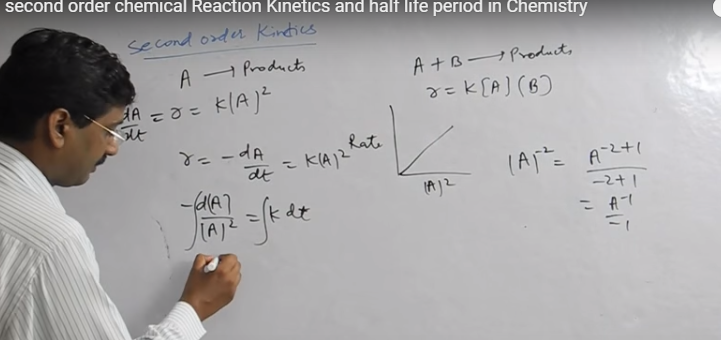 second order chemical Reaction Kinetics and half life period in Chemistry
Second order Kintics
A → Products
dA/dt = r = K(A)²
r = - dA/dt = K(A)²
-∫ d(A)/[A]² = ∫ K dt
A + B → Products
r = K[A](B)
Rate
(A)²
(A)⁻² = A⁻²⁺¹/-2+1
= A⁻¹/-1